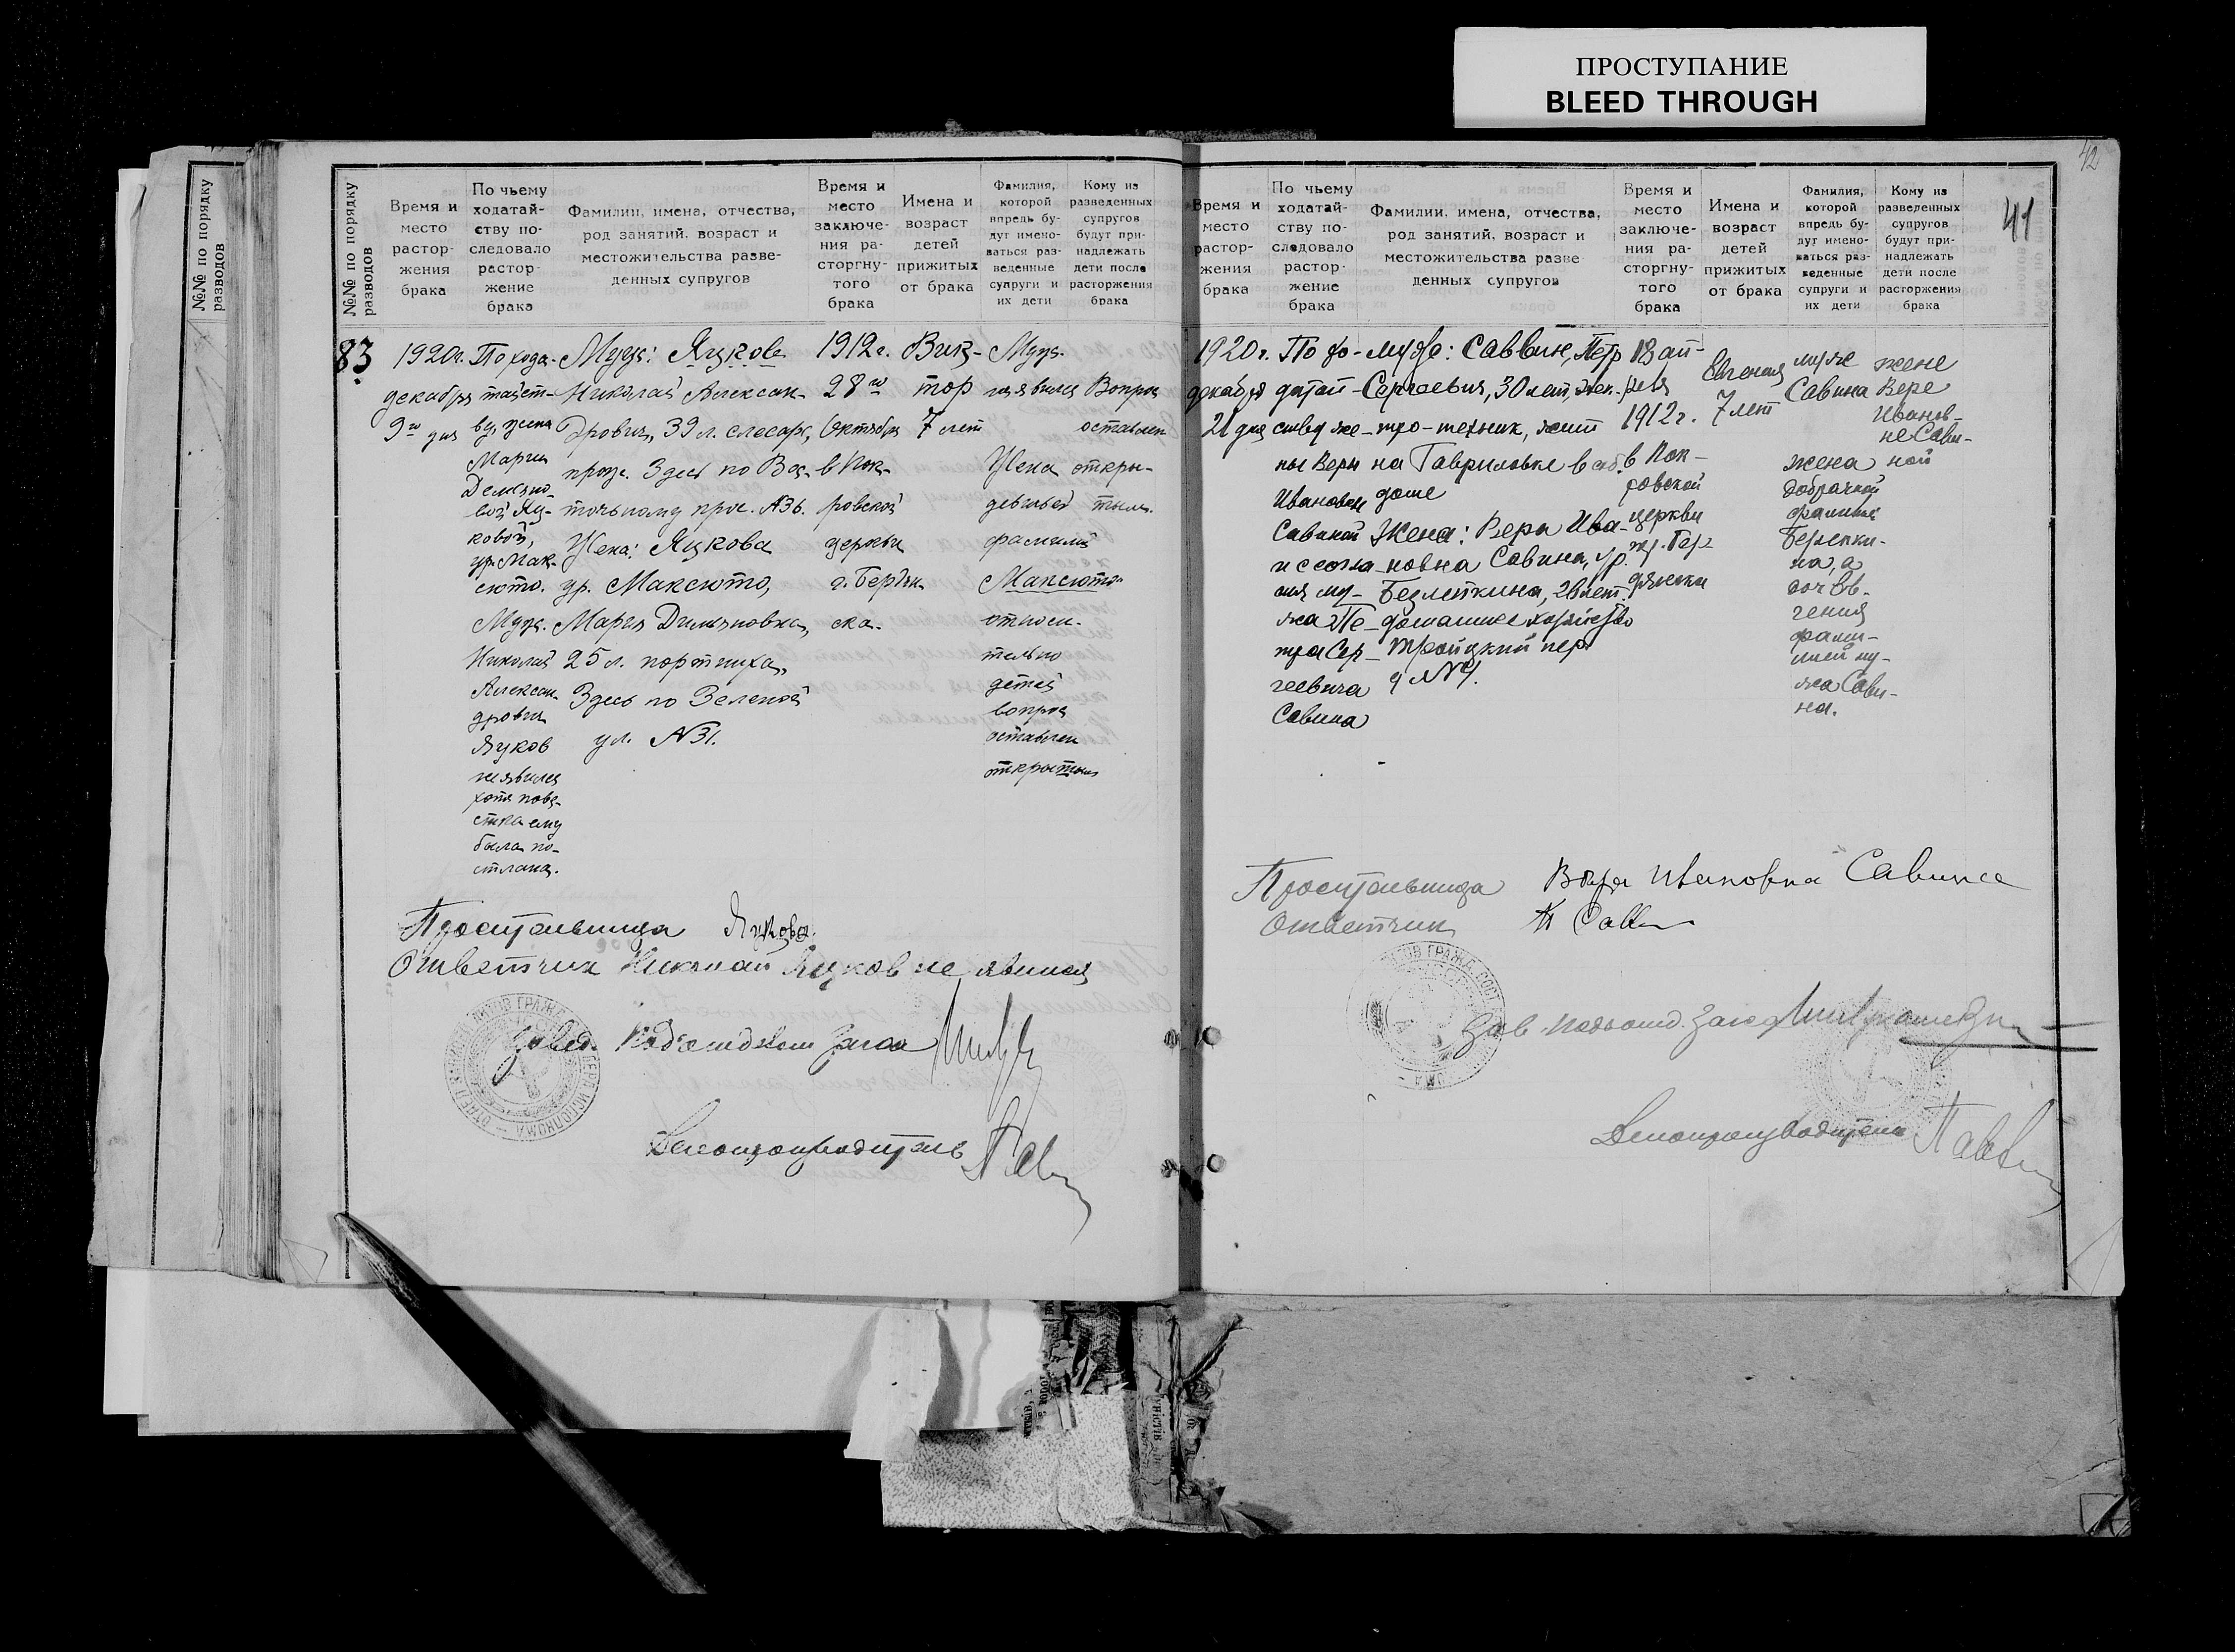 ПРОСТУПАНИЕ
BLEED THROUGH
42
41
№№ по порядку
разводов
№№ по порядку
разводов
Время и
место
растор-
жения
брака
По чьему
ходатай-
ству по-
следовало
растор-
жение
брака
Фамилии, имена, отчества,
род занятий, возраст и
местожительства разве-
денных супругов
Время и
место
заключе-
ния ра-
сторгну-
того
брака
Имена и
возраст
детей
прижитых
от брака
Фамилия,
которой
впредь бу-
дут имено-
ваться раз-
веденные
супруги и
их дети
Кому из
разведенных
супругов
будут при-
надлежать
дети после
расторжения
брака
83
1920г.
декабря
9го дня
По хода-
тайст-
ву жены
Марии
Демьяно-
вой Яц-
ковой,
ур. Мак-
сюто.
Муж.
Николай
Алексан-
дрович
Яцков
не явился
хотя пове-
стка ему
была по-
слана.
Муж: Яцков
Николай Алексан-
дрович, 39 л. слесарь,
прож. Здесь по Вос-
точному прос. №36.
Жена: Яцкова
ур. Максюто,
Мария Димьяновна,
25 л. портниха,
Здесь по Зеленой
ул. №31.
1912г.
28го
Октября
в Пок-
ровской
церкви
г. Бердян-
ска.
Вик-
тор
7 лет
Муж.
не явился
Жена
девичьей
фамилией
Максюто
относи-
тельно
детей
вопрос
оставлен
открытым
Вопрос
оставлен
откры-
тым.
Просительница Яцкова.
Ответчик Николай Яцков не явился
Завед. Подотделом Загса
Делопроизводитель
Время и
место
растор-
жения
брака
По чьему
ходатай-
ству по-
следовало
растор-
жение
брака
Фамилии, имена, отчества,
род занятий, возраст и
местожительства разве-
денных супругов
Время и
место
заключе-
ния ра-
сторгну-
того
брака
Имена и
возраст
детей
прижитых
от брака
Фамилия,
которой
впредь бу-
дут имено-
ваться раз-
веденные
супруги и
их дети
Кому из
разведенных
супругов
будут при-
надлежать
дети после
расторжения
брака
1920г.
декабря
21 дня
По хо-
датай-
ству же-
ны Веры
Ивановны
Савиной
и согла-
сия му-
жа Пе-
тра Сер-
геевича
Савина
муж: Саввин, Петр
Сергеевич, 30 лет, элек-
тро-техник, жит
на Гавриловке в соб.
доме
Жена: Вера Ива-
новна Савина, ур.
28 лет.
домашнее хозяйство
Троицкий пер.
д №4.
18 ап-
реля
1912г.
в Пок-
ровской
церкви
Евгения
7 лет
мужа
Савина
жена
добрачной
фамилией
на, а
дочь Ев-
гения
фами-
лией му-
жа Сави-
на.
жене
Вере
Иванов-
не Сави-
ной
Просительница Вера Ивановна Савина
Ответчик П Савин
Зав. Подотд. Загса
Делопроизводитель